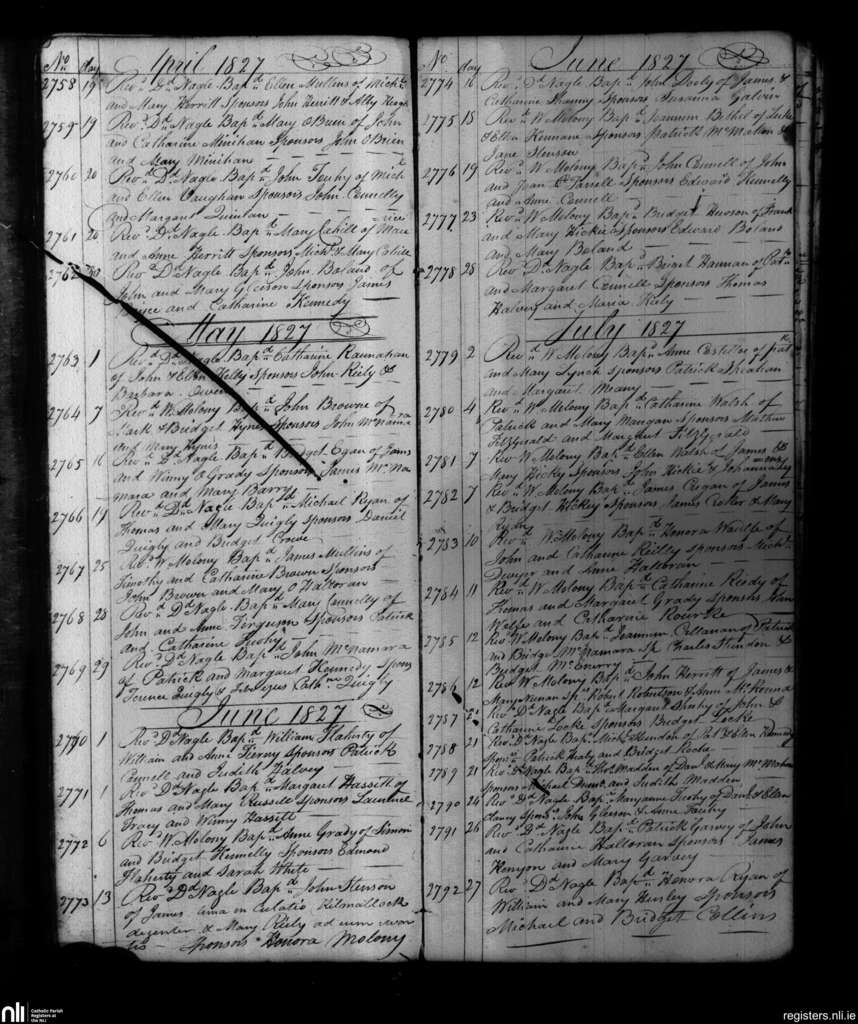 No day April 1827
2758 19 Revd Dn Nagle Bapd Ellen Mullens of Michl
and Mary Herritt Sponsors John Herritt & Atty
2759 19 Revd Dn Nagle Bapd Mary OBrien of John
and Catharine Minihan Sponsors John OBrien
and Mary Minihan
2760 20 Revd Dn Nagle Bapd John of Mich
and Ellen Vaughan Sponsors John Connelly
and Margaret Quinlan
2761 20 Revd Dn Nagle Bapd Mary Cahill of Mau
rice
and Anne Herritt Sponsors Michl & Mary Cahill
2762 30 Revd Dn Nagle Bapd John Boland of
John and Mary Gleeson Sponsors James
and Catharine Kennedy
May 1827
2763 1 Revd Dn Nagle Bapd Catharine Rannahan
of John & Ellen Kelly Sponsors John Riely &
Barbara
2764 7 Revd W Molony Bapd John Browne of
Mark & Bridget Hynes Sponsors John McNama
ra
and Mary Hynes
2765 16 Revd Dn Nagle Bapd Bridget Egan of James
and Winny O Grady Sponsors James McNa
mara and Mary Barry
2766 19 Revd Dn Nagle Bapd Michael Ryan of
Thomas and Mary Quigly Sponsors Daniel
Quigly and Bridget Crowe
2767 25 Revd W Molony Bapd James Mullins of
Timothy and Catharine Brown Sponsors
John Brown and Mary O Halloran
2768 28 Revd Dn Nagle Bapd Mary Connelly of
John and Anne Ferguson Sponsors Patrick
and Catharine
2769 29 Revd Dn Nagle Bapd John McNamara
of Patrick and Margaret Kennedy Spons
Terence Quigly & Cathne Quigly
June 1827
2770 1 Revd Dn Nagle Bapd William Flaherty of
William and Anne Tierny Sponsors Patrick
Connell and Judith Halvey
2771 1 Revd Dn Nagle Bapd Margaret Hassett of
Thomas and Mary Russell Sponsors Laurence
Tracy and Winny Hassett
2772 6 Revd W Molony Bapd Anne Grady of Simon
and Bridget Kennelly Sponsors Edmond
Flaherty and Sarah White
2773 13 Revd Dn Nagle Bapd John Henson
of James Kilmallock
degenter & Mary Riely
Sponsors Honora Molony
No day June 1827
2774 16 Revd Dn Nagle Bapd John Dooly of James &
Catharine Sponsors Susanna Galvin
2775 18 Revd W Molony Bapd Joannem Bethel of Luke
& Ellen Kennan Sponsors Patrick McMahon &
Jane Henson
2776 19 Revd W Molony Bapd John Connell of John
and Joan O Farrell Sponsors Edward Kennelly
and Anne Connell
2777 23 Revd W Molony Bapd Bridget Hewson of Frank
and Mary Hickie Sponsors Edward Boland
and Mary Boland
2778 28 Revd Dn Nagle Bapd Briget Hannan of Patk
and Margaret Connell Sponsors Thomas
Halvey and Maria Riely
July 1827
2779 2 Revd W Molony Bapd Anne Costelloe of Patk
and Mary Lynch Sponsors Patrick Sheahan
and Margaret Meany
2780 4 Revd W Molony Bapd Catharine Walsh of
Patrick and Mary Mangan Sponsors Mathew
Fitzgerald and Margaret Fitzgerald
2781 7 Revd W Molony Bapd Ellen Walsh of James &
Mary Hickey Sponsors John Hickie & Johanna
2782 7 Revd W Molony Bapd James Cregan of James
& Bridget Hickey Sponsors James Carter & Mary
Ryan
2783 10 Revd W Molony Bapd Honora of
John and Catharine Reilly Sponsors Michl
Dwyer and Anne Halloran
2784 11 Revd W Molony Bapd Catharine Reidy of
Thomas and Margaret Grady Sponsors
Wolfe and Catharine Rourke
2785 12 Revd W Molony Bapd Joannem Callanan of Patrick
and Bridget McNamara Sp. Charles &
Bridget McEnerry
2786 12 Revd W Molony Bapd John Herritt of James &
Mary Nunan Sps Robert Robertson & Anne McKenna
2787 Revd Dn Nagle Bapd Margaret of John &
Catharine Locke Sponsors Bridget Locke
2788 21 Revd Dn Nagle Bapd Michl of Pat & Ellen Kennedy
Sponrs Patrick Healy and Bridget Roche
2789 21 Revd Dn Nagle Bapd Thos Madden of Danl & Mary McMahon
Sponsors Michael and Judith Madden
2790 24 Revd Dn Nagle Bapd Maryanne of Danl & Ellen
Sponrs John Gleeson & Anne
2791 26 Revd Dn Nagle Bapd Patrick Garvey of John
and Catharine Halloran Sponsors James
Kenyon and Mary Garvey
2792 27 Revd Dn Nagle Bapd Honora Ryan of
William and Mary Hurley Sponsors
Michael and Bridget Collins
nli Catholic Parish
Registers at
the NLI
registers.nli.ie